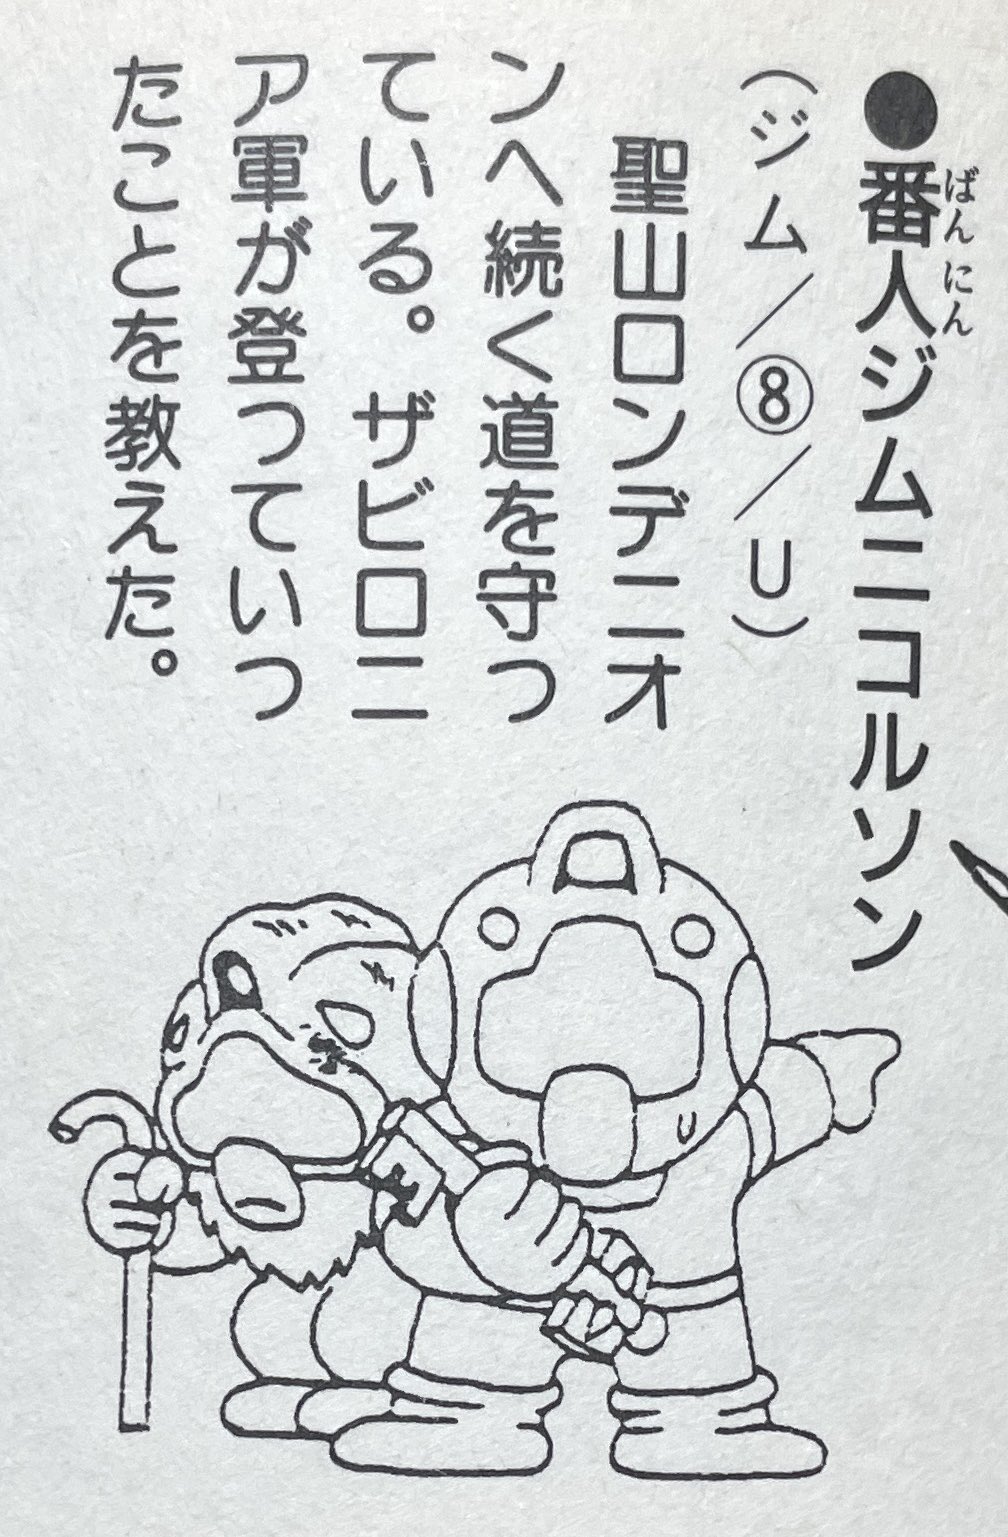 ●番人ジムニコルソン
ばんにん
（ジム／⑧／U）
聖山ロンデニオ
ンへ続く道を守っ
ている。ザビロニ
ア軍が登っていっ
たことを教えた。
U